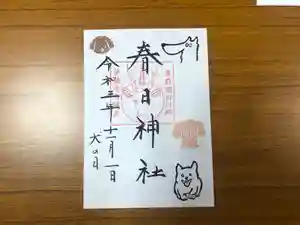 春日神社
令和三年十一月一日
犬の日